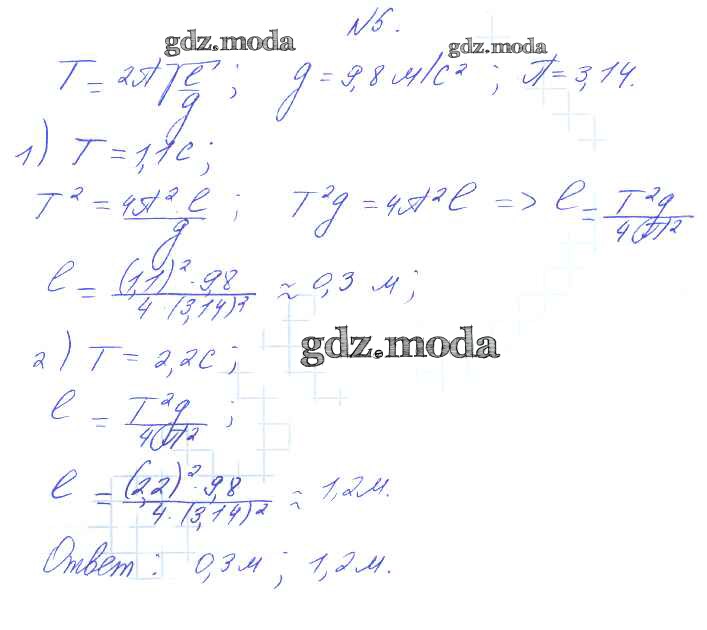 №5.
gdz.moda gdz.moda
T = 2π√(l/g); g = 9,8 м/с²; π = 3,14.
1) T = 1,1 с;
T² = 4π²·l/g; T²g = 4π²l => l = T²g/4π²
l = (1,1)²·9,8/4·(3,14)² ≈ 0,3 м;
gdz.moda
2) T = 2,2 с;
l = T²g/4π²;
l = (2,2)²·9,8/4·(3,14)² ≈ 1,2 м.
Ответ: 0,3 м; 1,2 м.